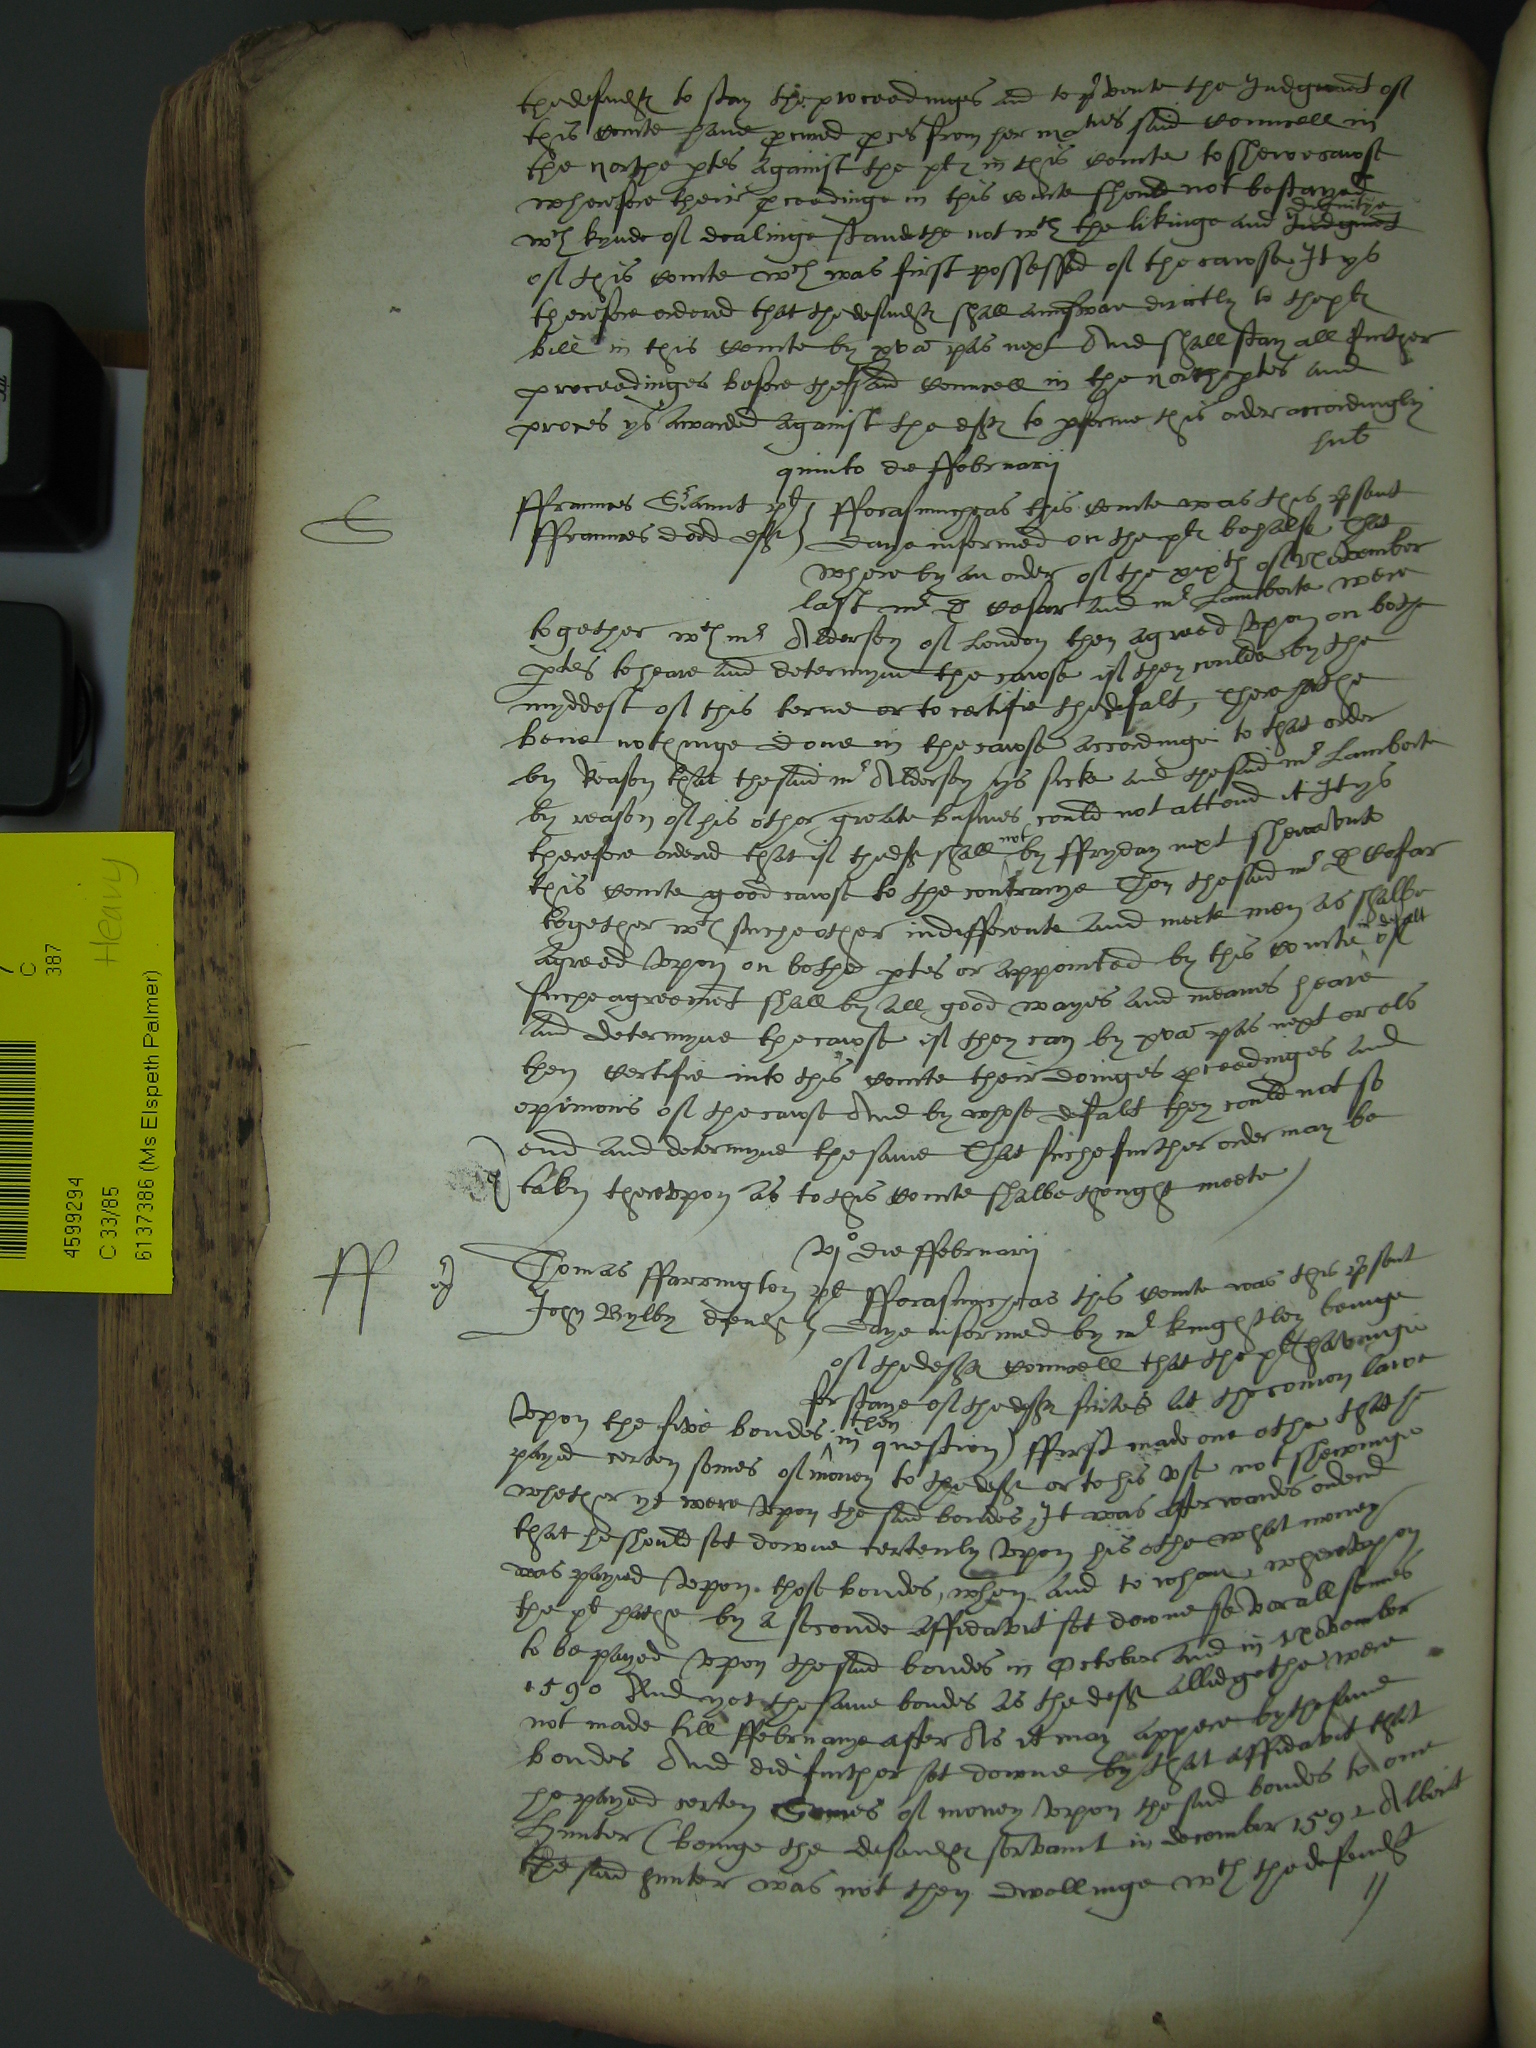 the defendt to stay the proceedinges and to pvente the Judgment of
this courte have pcured pces from her maties said councell in
the northe ptes against the plt in this courte to shewe cawse
wherefore their pceedinge in this courte should not be stayed
wch kynde of dealinge standethe not wth the likinge and dignitye
of this courte wch was first possessed of the cawse It ys
therefore ordered that the defendt shall aunswere directly to the plt
bill in this courte by pas next And shall stay all further
proceedinges before the said councell in the northe ptes and
proces ys awarded against the deft to pforme this order accordingly
quinto die ffebruarii
G
ffraunces plt fforasmuche as this courte was this psent
ffraunces dodd deft daye informed on the plt behalfe That
where by an order of the of November
last mr D Cesar and mr Lamberte were
together wth mr Alderson of London then agreed vpon on bothe
ptes to heare and determyne the cawse if they coulde by the
myddest of this terme or to certifie the defalt, There hathe
bene nothinge done in the cawse accordinge to that order
by Reason that the said mr Alderson ys sicke and the said mr Lamberte
by reason of his other greate busines could not attend it It ys
therefore ordered that if the deft shall not by ffryday next shewe vnto
this courte good cawse to the contrarye Then the said mr D Cesar
together wth suche other indifferente and meete men as shalbe
agreed vpon on bothe ptes or appointed by this courte in defalt of
suche agreement shall by all good wayes and meanes heare
and determyne the cawse if they can by pas next or els
then certifie into this courte their doinges pceedinges and
opinions of the cawse And by whose defalt they could not so
end and determyne the same That suche further order may be
taken therevpon as to this courte shalbe thought meete
vjo die ffebruarii
ff
Thomas ffarrington plt fforasmuche as this courte was this psent
John Bylby defendt daye informed by mr kinghtley beinge
of the deft councell that the plt havinge
for staye of the deft suites at the comon lawe
vpon the five bondes then in question) ffirst made one othe that he
payed certen somes of money to the deft or to his vse not shewinge
whether yt were vpon the said bondes, It was afterwardes ordered
that he should set downe certenly vpon his othe what money
was payed vpon those bondes, when and to whom, wherevpon
the plt hathe by a seconde affidavit set downe severall somes
to be payed vpon the said bondes in October and in November
1590 And yet the same bondes as the deft alledgethe were
not made till ffebruarye after As it may appere by the same
bondes And did further set downe by that affidavit that
he payed certen Somes of money vpon the said bondes to one
Hunter (beinge the defendt servant in december 1591 Albeit
the said hunter was not then dwellinge wth the defendt
C
387
Heavy
4599294
C 33/85
6137386 (Ms Elspeth Palmer)